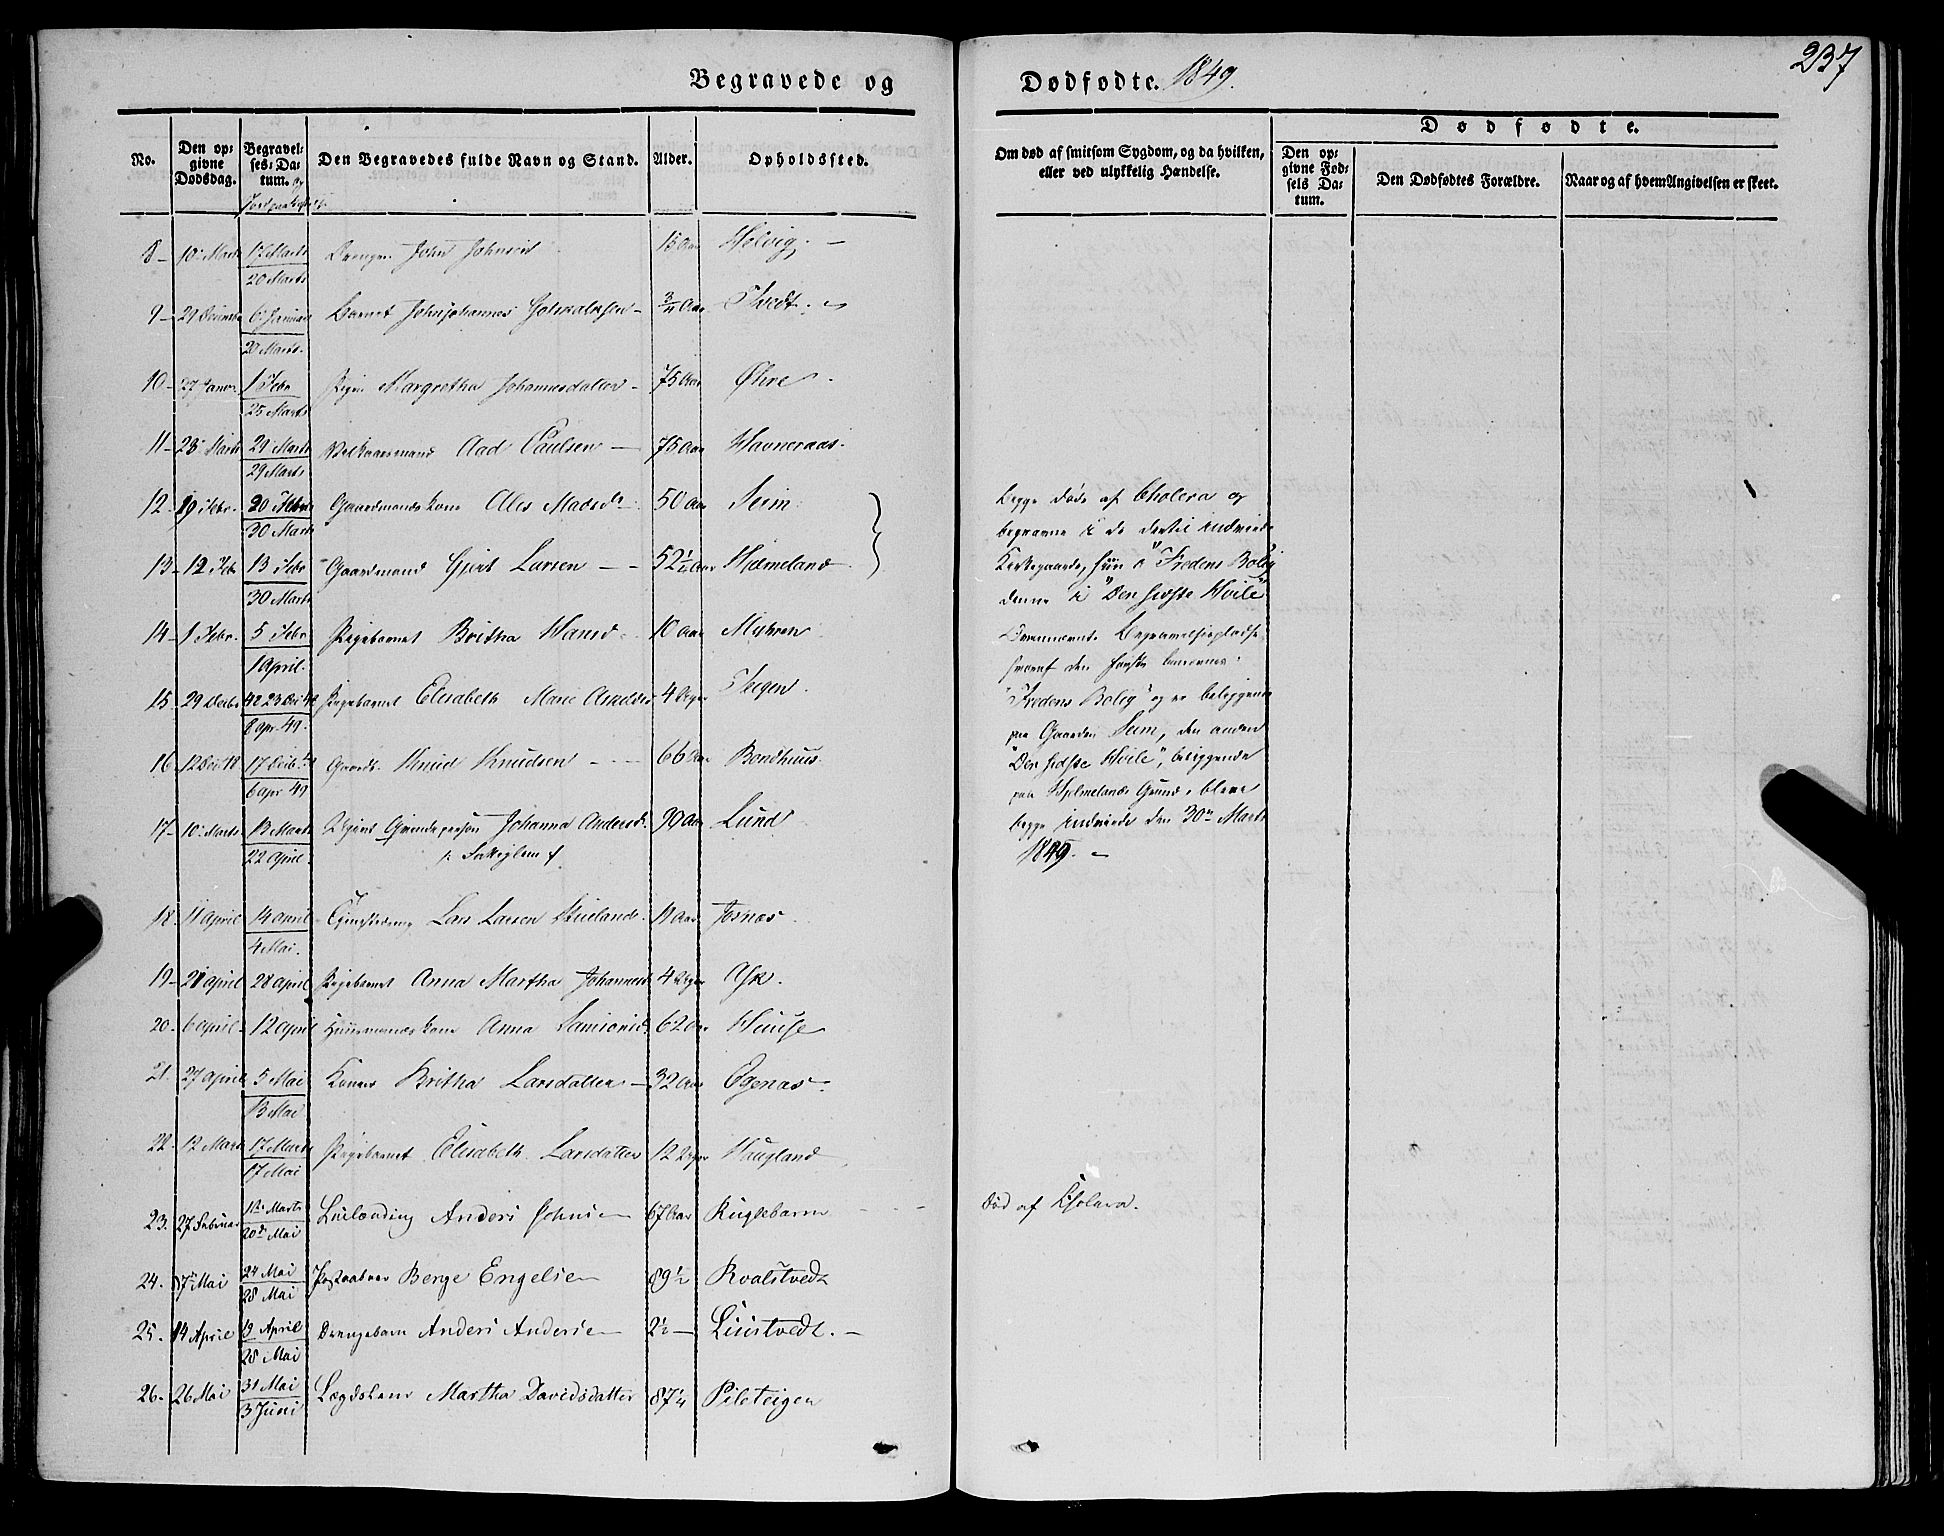 237
Begravede og Dødfødte. 1849.
No.
Den opgivne Dødsdag.
Begravelses-Datum. og Jordpaakastelse
Den Begravedes fulde Navn og Stand.
Alder.
Opholdssted.
Om død af smitsom Sygdom, og da hvilken, eller ved ulykkelig Hændelse.
Dødfødte.
Den opgivne Fødsels Datum.
Den Dødfødtes Forældre.
Naar og af hvem Angivelsen er skeet.
8 – 10 Marts 17 Marts / 20 Marts Drengen John Johnsen 15 Aar Helvig. –
9 – 29 Decemb 6 Januar / 20 Marts. Barnet Johnjohannes – 3/4 Aar Tvedt. –
10 – 27 Janur 1 Febr / 25 Marts Pigen Margretha Johannesdatter – 75 Aar Øhre –
11 – 23 Marts 29 Marts / 29 Marts Aad Paulsen – 75 Aar Havneraas.
12 – 19 Febr. 20 Febr / 30 Marts Gaardmandskone Ales Madsd. 50 Aar Seim
13 – 12 Feb 13 Febr / 30 Marts Gaardmand Gjert Larsen – – 52 1/4 Aar Hjelmeland
14 – 1 Febr. 5 Febr / 1 April. Pigebarnet Britha Hansd. 10 Aar Myhren
15. 29 Decbr 48 23 Dec 48 / 8 apr. 49. Pigebarnet Elisabeth Marie 4 Uger Teigen
16 – 12 Dec 48 17 Decbr / 6 apr 49 Gaardb. Knud Knudsen – – 66 Aar Bondhuus
17 – 10 Marts 13 Marts / 22 April. Johanna Andersd. 90 Aar Lund
18. 11 April 14 April / 4 Mai. Lars Larsen 11 Aar
19 – 21 April 28 April Pigebarnet Anna Martha Johannesd 4 Uger Ask.
20 – 6 April – 12 April Huusmandskone Anna 62 Aar Huuse
21. 27 April 5 Mai / 13 Mai Konen Britha Larsdatter – 32 Aar Egenæs –
22. 12 Marts 17 Marts / 17 Mai Pigebarnet Elisabeth Larsdatter 12 Uger Haugland
23. 27 Februar Marts / 20de Mai Anders Johnsen 67 Aar
24. 17 Mai 24 Mai / 28 Mai Berge Engelsen 89 1/2 Kvalstvedt
25. 14 April 19 April / 28 Mai Drengebarn Anders Andersen 2 1/2 – –
26. 26 Mai 31 Mai / 3 Juni Lægdslem Martha Davidsdatter 87 1/4 Pileteigen
Begge døde af Cholera og
begravne i de dertil indviede
Kirkegaarde, hun i "Fredens Bolig"
denne i "Den sidste Hvile"
Begravelsespladse
hvoraf den første benævnes:
"Fredens Bolig" og er beliggende
paa Gaarden Seim, den anden
"Den sidste Hvile", beliggende
paa Hjelmelands Grund, bleve
begge indviede den 30te Marts
1849. –
Død af Cholera.